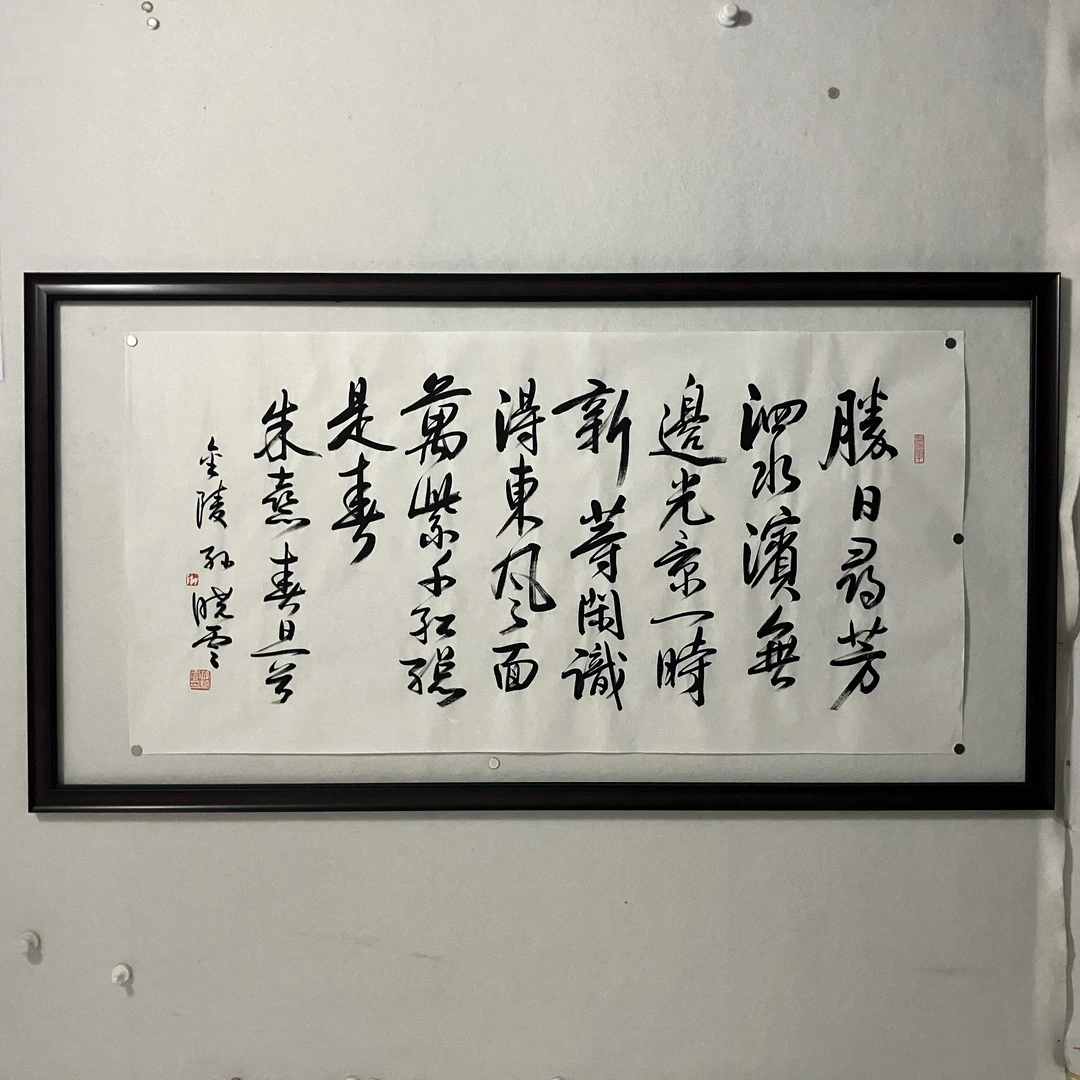 勝日尋芳
泗水濱無
邊光景一時
新等閑識
得東風面
萬紫千紅總
是春
朱熹春日兮
金陵孫曉雲